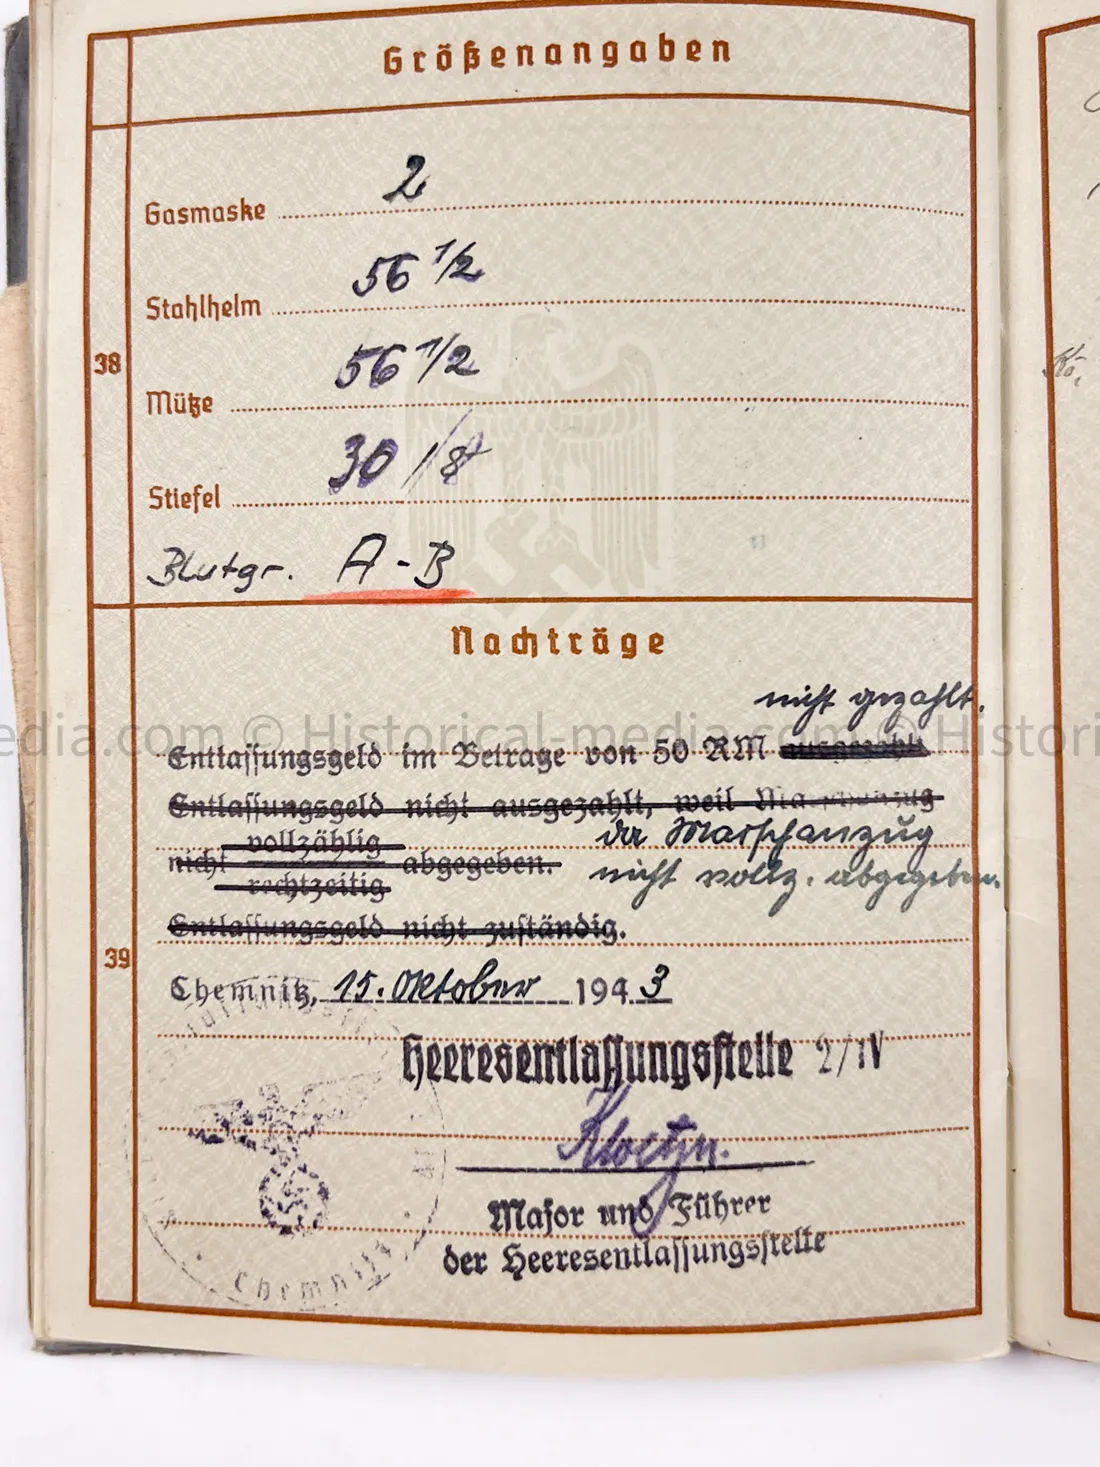 Größenangaben
Gasmaske 2
Stahlhelm 56 1/2
38
Mütze 56 1/2
Stiefel 30 / 8
Blutgr. A - B
Nachträge
nicht gezahlt.
Entlassungsgeld im Betrage von 50 RM ausgezahlt
Entlassungsgeld nicht ausgezahlt, weil Marschanzug
vollzählig
der Marschanzug
nicht abgegeben.
rechtzeitig
nicht vollz. abgegeben.
Entlassungsgeld nicht zuständig.
39
Chemnitz, 15. Oktober 1943
Heeresentlassungsstelle 2/IV
Major und Führer
der Heeresentlassungsstelle
Chemnitz
edia.com © Historical-media.com © Histor
Kö.